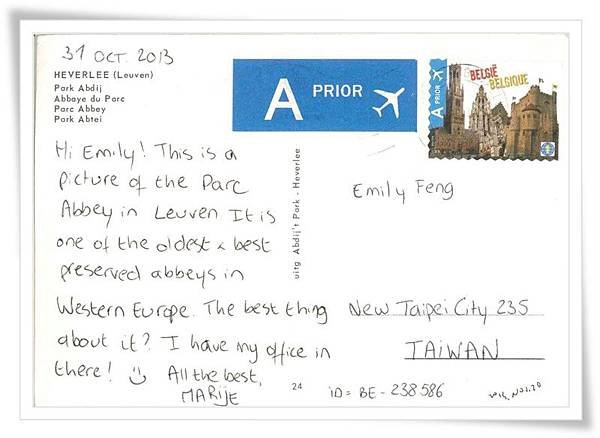 31 OCT. 2013
HEVERLEE (Leuven)
Park Abdij
Abbaye du Parc
Parc Abbey
Park Abtei
A PRIOR
A PRIOR
BELGIË
BELGIQUE
Hi Emily! This is a
picture of the Parc
Abbey in Leuven It is
one of the oldest & best
preserved abbeys in
Western Europe. The best thing
about it? I have my office in
there! All the best,
MARIJE
uitg Abdij't Park - Heverlee
24
Emily Feng
New Taipei City 235
TAIWAN
iD = BE - 238586